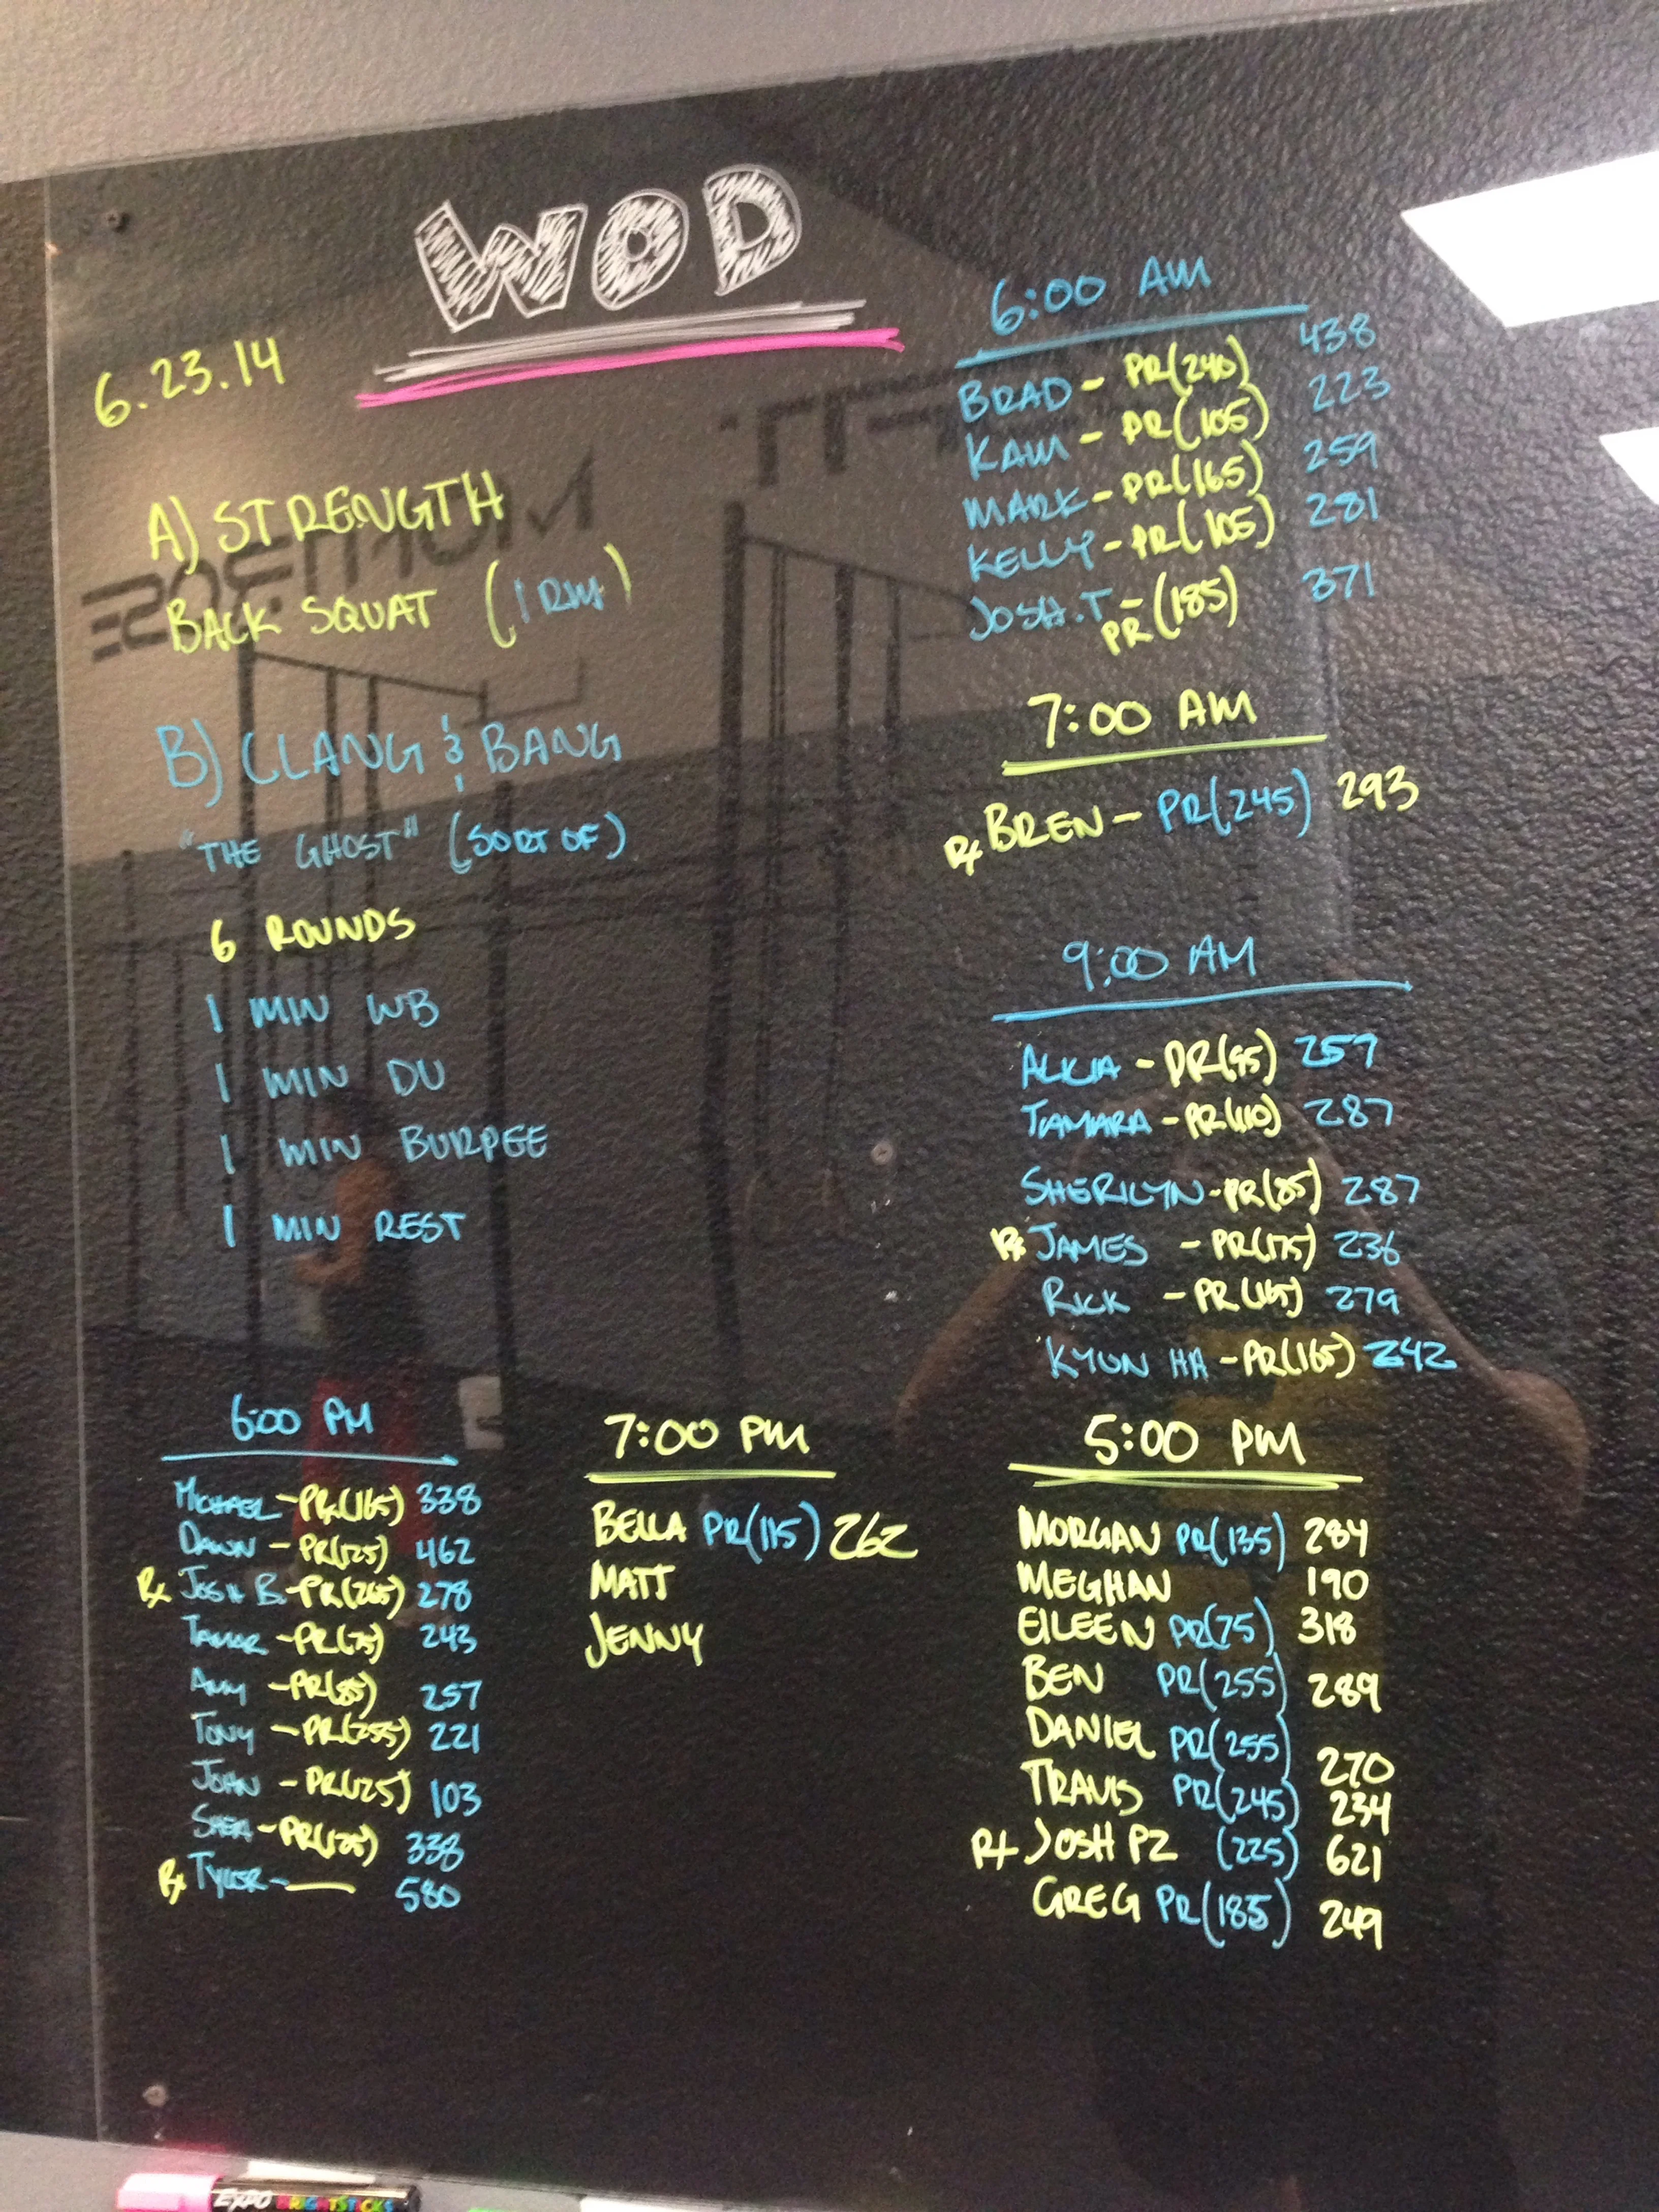 WOD
6.23.14
A) STRENGTH
BACK SQUAT (1 RM)
B) CLANG & BANG
"THE GHOST" (SORT OF)
6 ROUNDS
1 MIN WB
1 MIN DU
1 MIN BURPEE
1 MIN REST
6:00 AM
BRAD - PR(240) 438
KAM - PR(105) 223
MARK - PR(165) 259
KELLY - PR(105) 281
JOSH.T - PR(185) 371
7:00 AM
Rx BREN - PR(245) 293
9:00 AM
ALICIA - PR(95) 259
TAMARA - PR(110) 287
SHERILYN - PR(85) 287
Rx JAMES - PR(175) 236
RICK - PR(165) 279
KYUN HA - PR(165) 242
6:00 PM
MICHAEL - PR(165) 338
DAWN - PR(125) 462
Rx JOSH B. - PR(265) 278
TAMAR - PR(75) 243
AMY - PR(85) 257
TONY - PR(255) 221
JOHN - PR(125) 103
SHEA - PR(125) 338
Rx TYLER - 580
7:00 PM
BELLA PR(115) 262
MATT
JENNY
5:00 PM
MORGAN PR(135) 284
MEGHAN 190
EILEEN PR(75) 318
BEN PR(255) 289
DANIEL PR(255) 270
TRAVIS PR(245) 234
Rx JOSH PZ (225) 621
GREG PR(185) 249
EXPO BRIGHTSTICKS